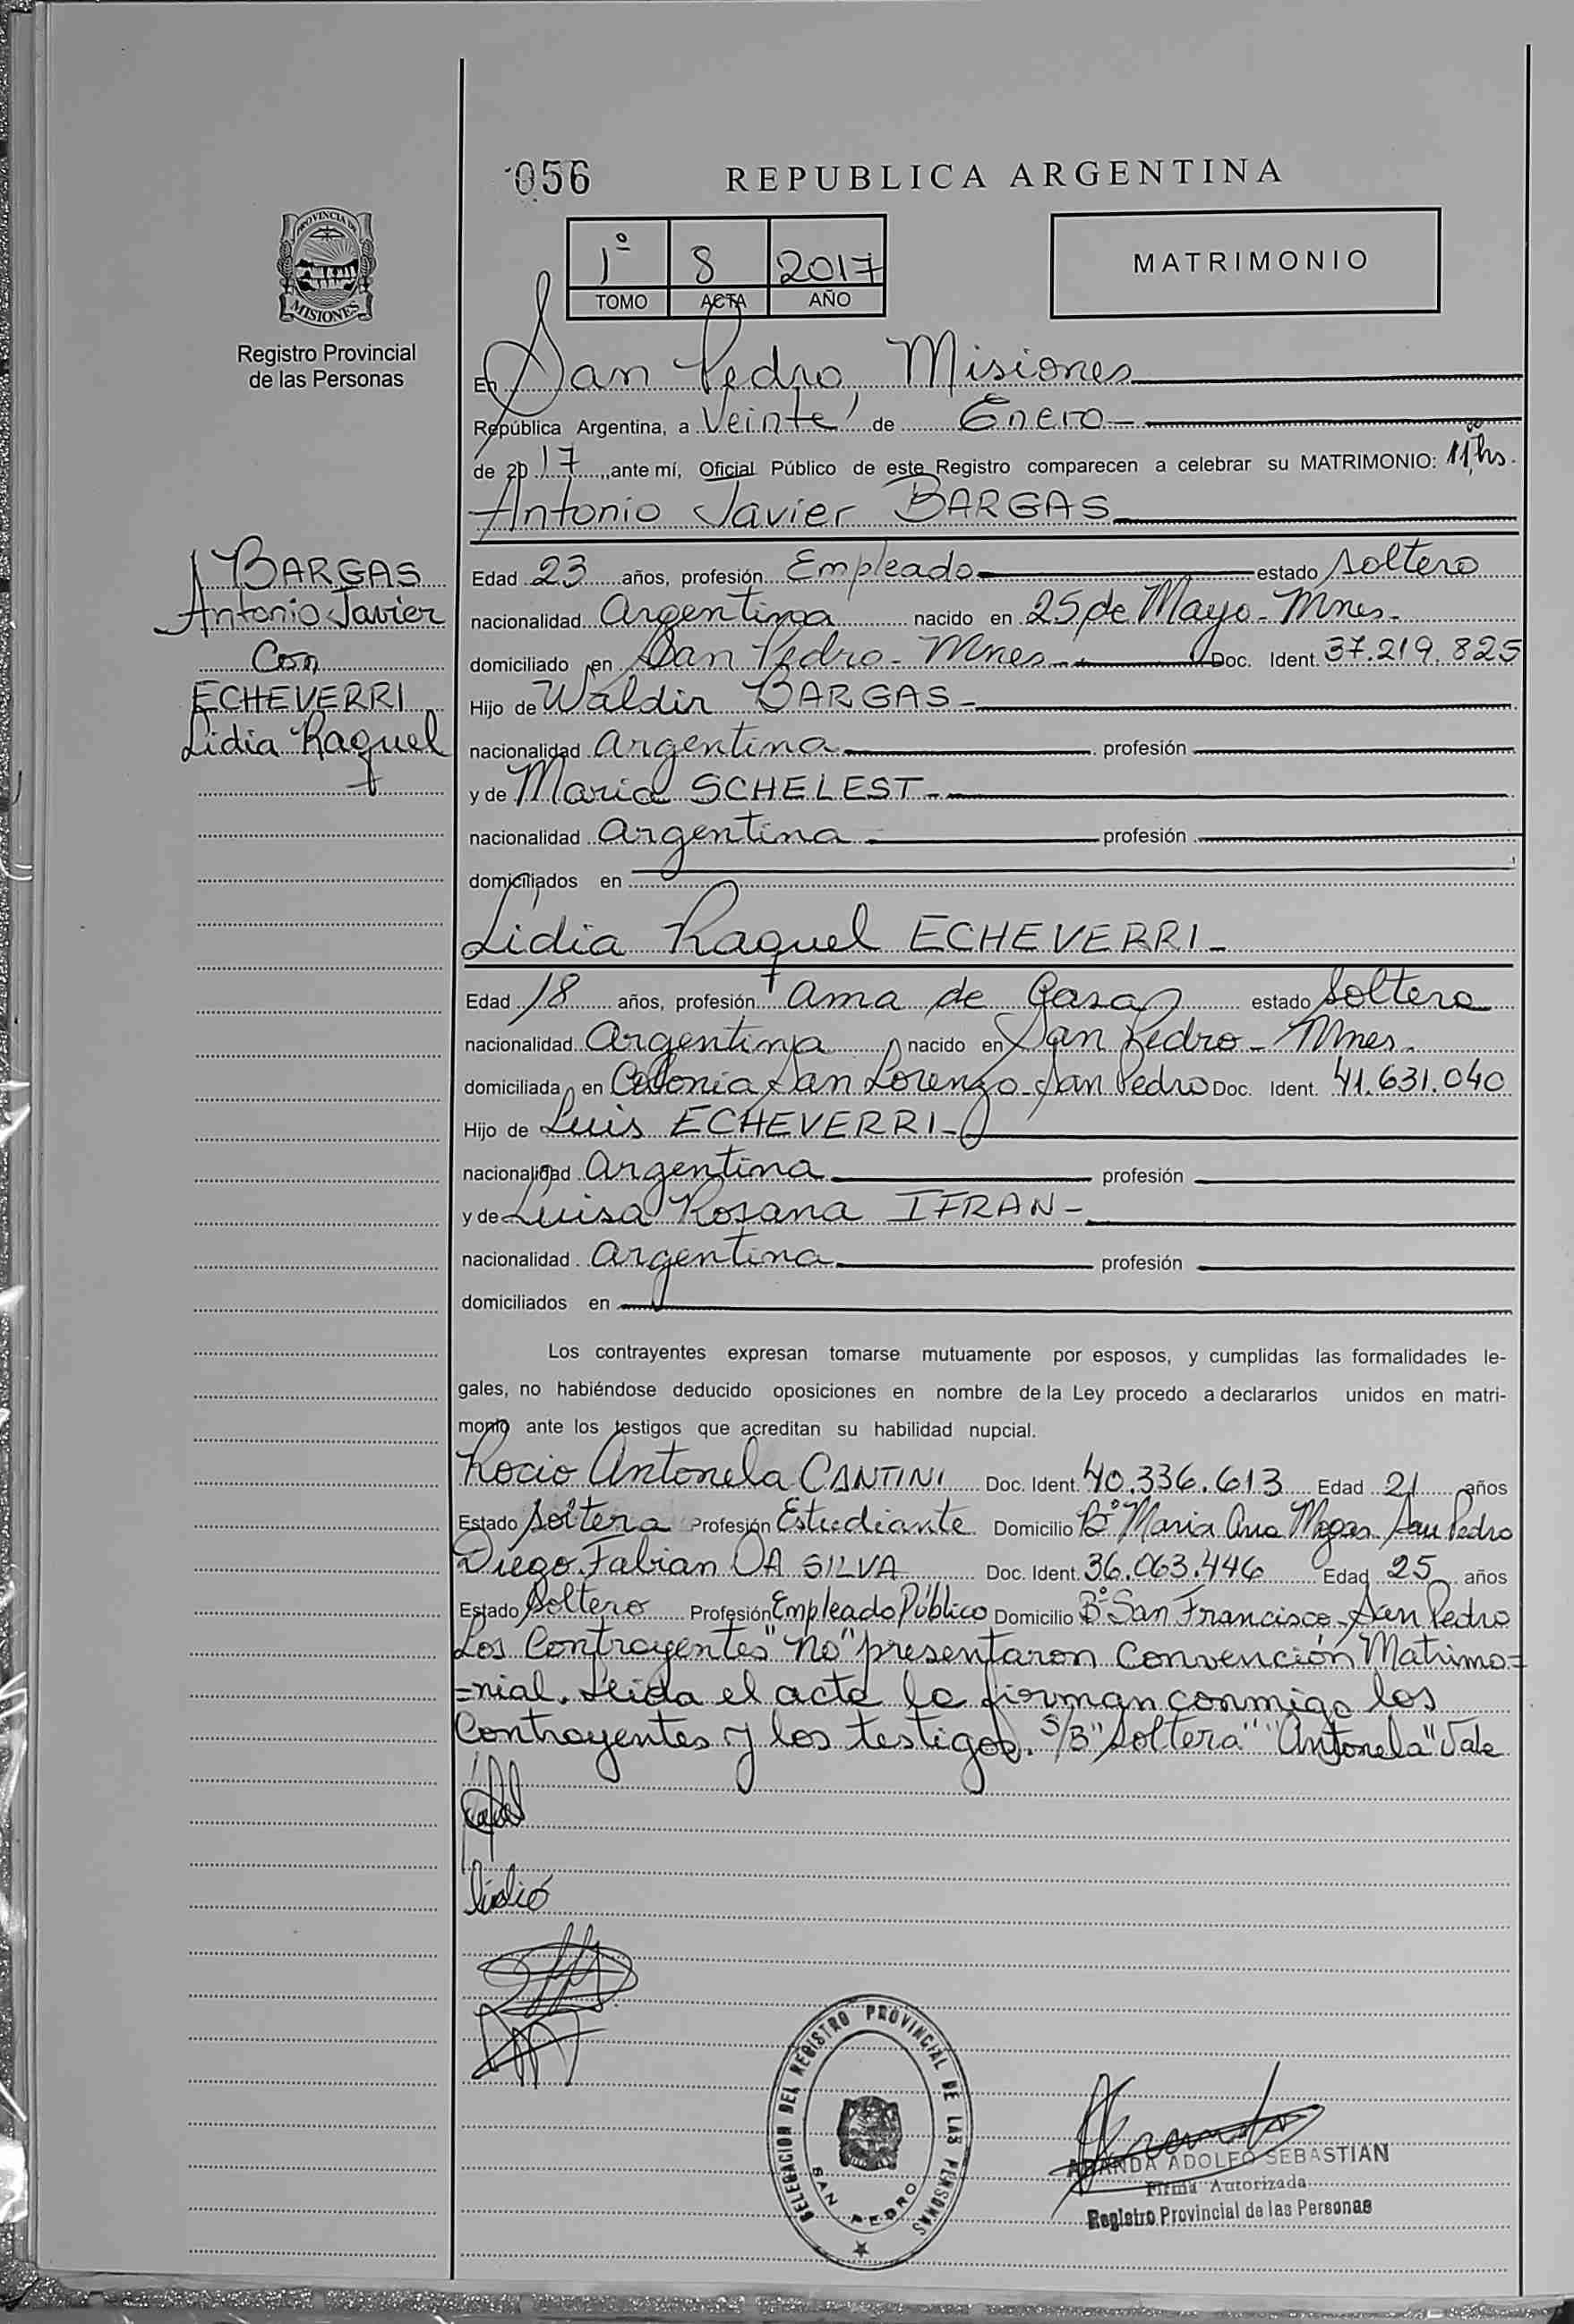 056
REPUBLICA ARGENTINA
PROVINCIA DE
MISIONES
Registro Provincial
de las Personas
1º 8 2017
TOMO ACTA AÑO
MATRIMONIO
En San Pedro, Misiones
República Argentina, a Veinte, de Enero
de 2017, ante mí, Oficial Público de este Registro comparecen a celebrar su MATRIMONIO: 11,00 hs.
Antonio Javier BARGAS
BARGAS
Antonio Javier
Con
ECHEVERRI
Lidia Raquel
Edad 23 años, profesión Empleado estado soltero
nacionalidad Argentina nacido en 25 de Mayo - Mnes -
domiciliado en San Pedro - Mnes - Doc. Ident. 37.219.825
Hijo de Waldir BARGAS -
nacionalidad Argentina profesión
y de Maria SCHELEST -
nacionalidad Argentina profesión
domiciliados en
Lidia Raquel ECHEVERRI -
Edad 18 años, profesión Ama de Casa estado Soltera
nacionalidad Argentina nacido en San Pedro - Mnes -
domiciliada en Colonia San Lorenzo - San Pedro Doc. Ident. 41.631.040
Hijo de Luis ECHEVERRI -
nacionalidad Argentina profesión
y de Luisa Rosana IFRAN -
nacionalidad Argentina profesión
domiciliados en
Los contrayentes expresan tomarse mutuamente por esposos, y cumplidas las formalidades le-
gales, no habiéndose deducido oposiciones en nombre de la Ley procedo a declararlos unidos en matri-
monio ante los testigos que acreditan su habilidad nupcial.
Rocio Antonela CANTINI Doc. Ident. 40.336.613 Edad 21 años
Estado Soltera Profesión Estudiante Domicilio Bº Maria Ana San Pedro
Diego Fabian DA SILVA Doc. Ident. 36.063.446 Edad 25 años
Estado Soltero Profesión Empleado Público Domicilio Bº San Francisco - San Pedro
Los Contrayentes "no" presentaron Convención Matrimo=
=nial. Leida el acta la firman conmigo los
Contrayentes y los testigos. S/B "Soltera" "Antonela" Vale
Lidia
DELEGACION DEL REGISTRO PROVINCIAL DE LAS PERSONAS
SAN PEDRO
ARANDA ADOLFO SEBASTIAN
Firma Autorizada
Registro Provincial de las Personas